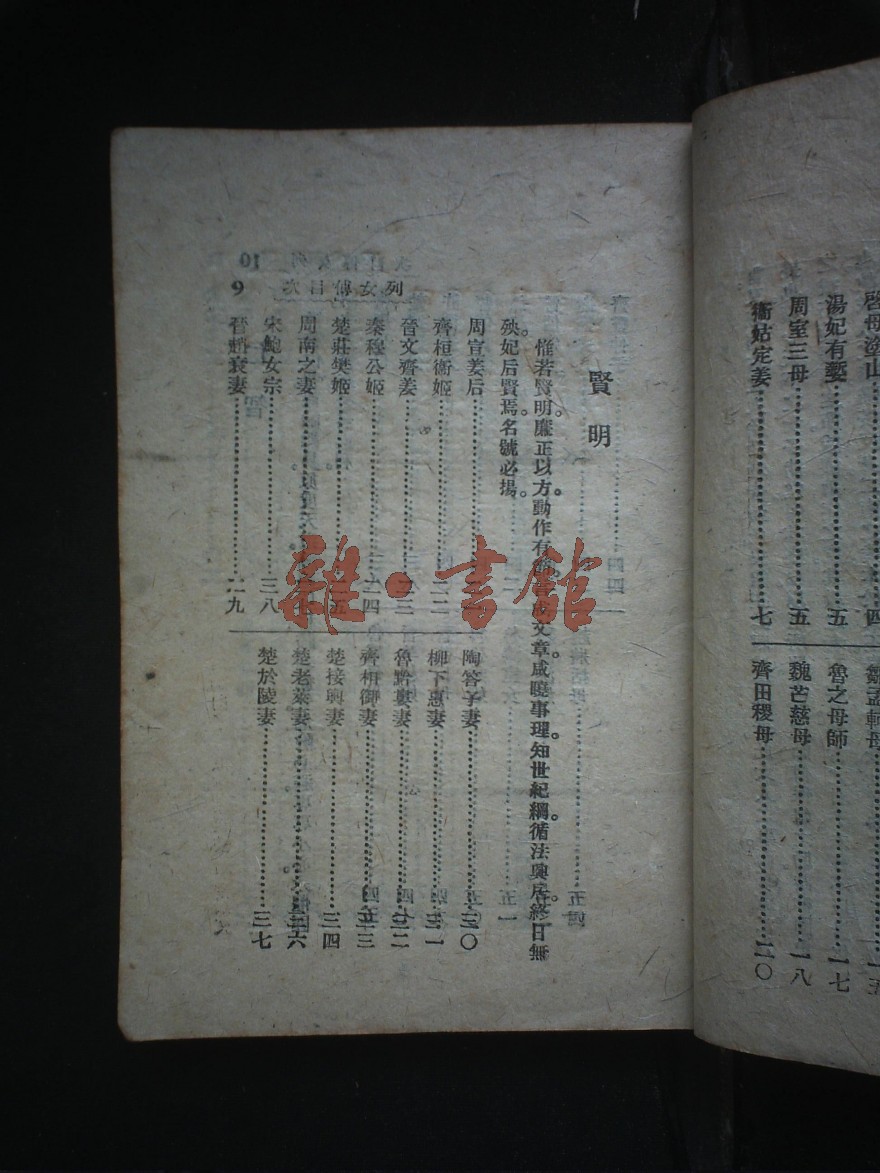 啓母塗山
湯妃有㜪
五
周室三母
五
衞姑定姜
七
魯之母師
一七
魏芒慈母
一八
齊田稷母
二〇
列女傳目次
9
賢明
惟若賢明。廉正以方。動作有
文章。咸曉事理。知世紀綱。循法興居。終日無
殃。妃后賢焉。名號必揚。
周宣姜后
齊桓衞姬
晉文齊姜
秦穆公姬
二四
楚莊樊姬
周南之妻
宋鮑女宗
晉趙衰妻
陶答子妻
柳下惠妻
魯黔婁妻
齊相御妻
楚接輿妻
三四
楚老萊妻
楚於陵妻
三七
雜·書館